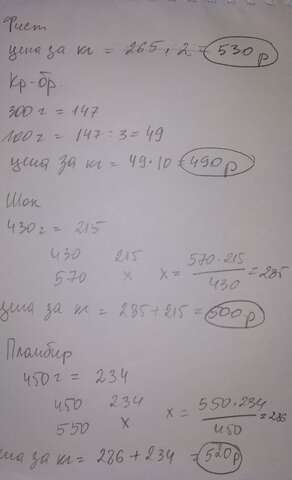 Фист
цена за кг = 265 · 2 = 530 р
Кр-бр.
300 г = 147
100 г = 147 : 3 = 49
цена за кг = 49 · 10 = 490 р
Шок
430 г = 215
430 215
570 x x = 570 · 215 / 430 = 285
цена за кг = 285 + 215 = 500 р
Пломбир
450 г = 234
450 234
550 x x = 550 · 234 / 450 = 286
цена за кг = 286 + 234 = 520 р